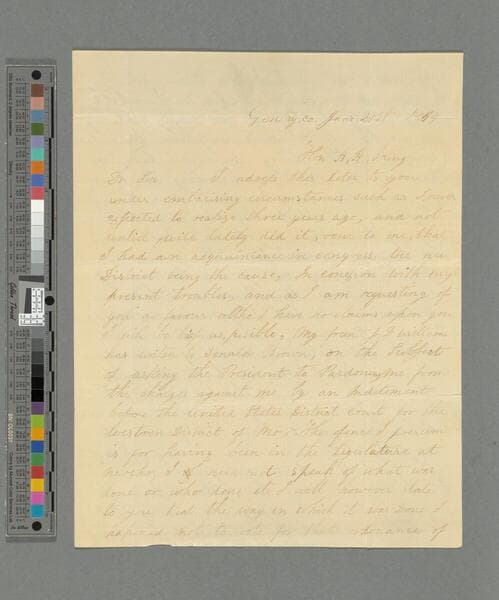 Gentry, co. Jan 21st 1864
Hon A, A, King
Dr Sir I adress this leter to you
under contrarising circumstances such as I never
expected to realize three years ago, and not
untill quite lately did it, ocur to me, that
I had an acquaintance in congress, the new
District being the cause, In conexion with my
present troubles, and as I am requesting of
you a favour altho I have no claims upon you
I will be as posible, My friend J. D williams
has writen to Senator Brown, on the Subject
of asking the President to Pardon me from
the charges against me by an Indictment
before the united States District court for the
western District of Mo, The ofence I presume
is for having been in the Legislature at
neosho, I need not speak of what was
done or who done it I will however state
to you that the way in which it was done I
hapened not to vote for that ordinance of